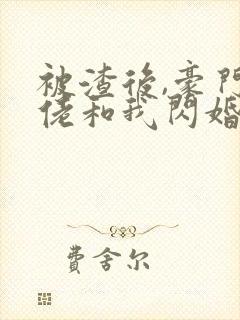 被渣後,豪門
佬和我閃婚
費舍尔